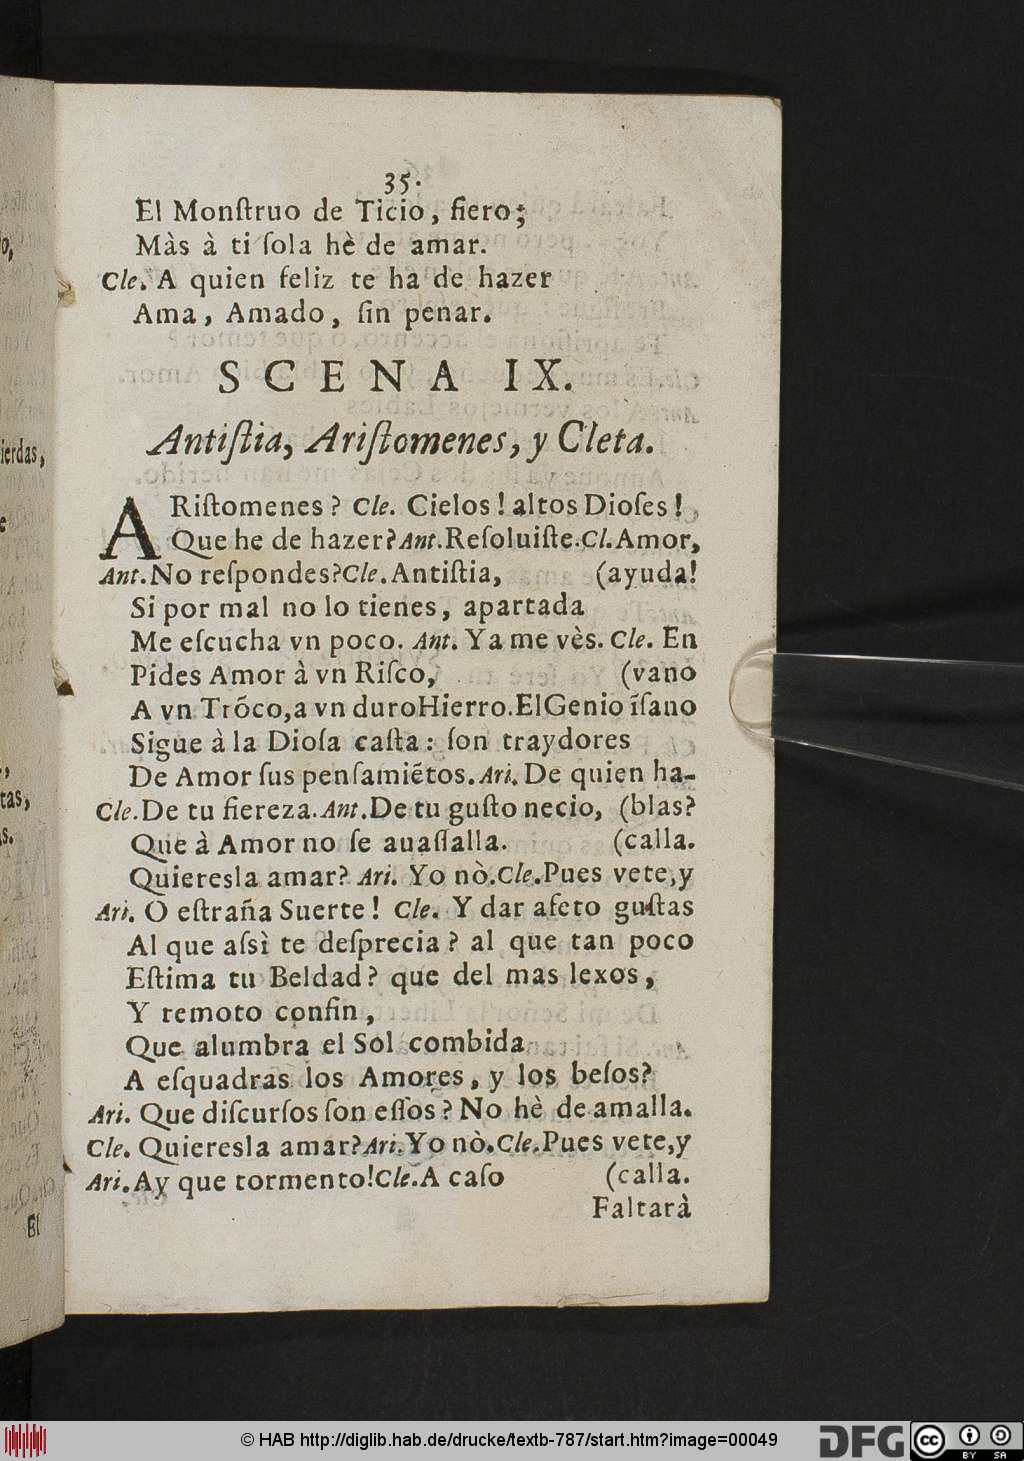 35.
El Monſtruo de Ticio, fiero;
Màs à ti ſola hè de amar.
Cle. A quien feliz te ha de hazer
Ama, Amado, ſin penar.
SCENA IX.
Antiſtia, Ariſtomenes, y Cleta.
ARiſtomenes? Cle. Cielos! altos Dioſes!
Que he de hazer? Ant. Reſoluiſte. Cl. Amor,
Ant. No reſpondes? Cle. Antiſtia, (ayuda!
Si por mal no lo tienes, apartada
Me eſcucha vn poco. Ant. Ya me vès. Cle. En
Pides Amor à vn Riſco, (vano
A vn Trõco, a vn duro Hierro. El Genio ĩſano
Sigue à la Dioſa caſta: ſon traydores
De Amor ſus penſamiẽtos. Ari. De quien ha-
Cle. De tu fiereza. Ant. De tu guſto necio, (blas?
Que à Amor no ſe auaſſalla. (calla.
Quieresla amar? Ari. Yo nò. Cle. Pues vete, y
Ari. O eſtraña Suerte! Cle. Y dar afeto guſtas
Al que aſsì te deſprecia? al que tan poco
Eſtima tu Beldad? que del mas lexos,
Y remoto confin,
Que alumbra el Sol combida
A eſquadras los Amores, y los beſos?
Ari. Que diſcurſos ſon eſſos? No hè de amalla.
Cle. Quieresla amar? Ari. Yo nò. Cle. Pues vete, y
Ari. Ay que tormento! Cle. A caſo (calla.
Faltarà
ierdas,
tas,
El
© HAB http://diglib.hab.de/drucke/textb-787/start.htm?image=00049
DFG
cc BY SA